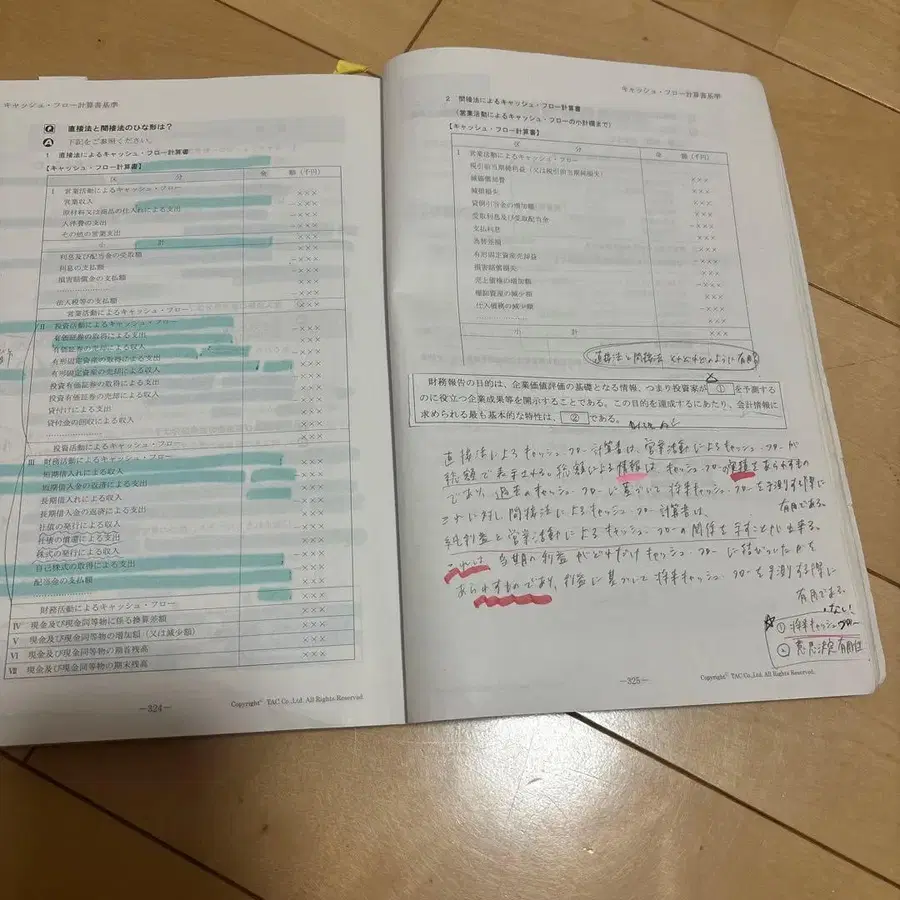 キャッシュ・フロー計算書基準
Q 直接法と間接法のひな形は?
A 下記をご参照ください。
1 直接法によるキャッシュ・フロー計算書
【キャッシュ・フロー計算書】
区 分 金 額(千円)
Ⅰ 営業活動によるキャッシュ・フロー
営業収入 ×××
原材料又は商品の仕入れによる支出 -×××
人件費の支出 -×××
その他の営業支出 -×××
小 計 ×××
利息及び配当金の受取額 ×××
利息の支払額 -×××
損害賠償金の支払額 -×××
………………… ×××
法人税等の支払額 -×××
営業活動によるキャッシュ・フロー ×××
Ⅱ 投資活動によるキャッシュ・フロー
有価証券の取得による支出 -×××
有価証券の売却による収入 ×××
有形固定資産の取得による支出 -×××
有形固定資産の売却による収入 ×××
投資有価証券の取得による支出 -×××
投資有価証券の売却による収入 ×××
貸付けによる支出 -×××
貸付金の回収による収入 ×××
………………… ×××
投資活動によるキャッシュ・フロー ×××
Ⅲ 財務活動によるキャッシュ・フロー
短期借入れによる収入 ×××
短期借入金の返済による支出 -×××
長期借入れによる収入 ×××
長期借入金の返済による支出 -×××
社債の発行による収入 ×××
社債の償還による支出 -×××
株式の発行による収入 ×××
自己株式の取得による支出 -×××
配当金の支払額 -×××
………………… ×××
財務活動によるキャッシュ・フロー ×××
Ⅳ 現金及び現金同等物に係る換算差額 ×××
Ⅴ 現金及び現金同等物の増加額(又は減少額) ×××
Ⅵ 現金及び現金同等物の期首残高 ×××
Ⅶ 現金及び現金同等物の期末残高 ×××
-324-
Copyright© TAC Co.,Ltd. All Rights Reserved.
キャッシュ・フロー計算書基準
2 間接法によるキャッシュ・フロー計算書
(営業活動によるキャッシュ・フローの小計欄まで)
【キャッシュ・フロー計算書】
区 分 金 額(千円)
Ⅰ 営業活動によるキャッシュ・フロー
税引前当期純利益(又は税引前当期純損失) ×××
減価償却費 ×××
減損損失 ×××
貸倒引当金の増加額 ×××
受取利息及び受取配当金 -×××
支払利息 ×××
為替差損 ×××
有形固定資産売却益 -×××
損害賠償損失 ×××
売上債権の増加額 -×××
棚卸資産の減少額 ×××
仕入債務の減少額 -×××
………………… ×××
小 計 ×××
直接法と間接法 それぞれどのように有用
財務報告の目的は、企業価値評価の基礎となる情報、つまり投資家が ① を予測する
のに役立つ企業成果等を開示することである。この目的を達成するにあたり、会計情報に
求められる最も基本的な特性は、 ② である。
直接法によるキャッシュ・フロー計算書は、営業活動によるキャッシュ・フローが
総額で表示される。総額による情報は、キャッシュ・フローの実績をあらわすもの
であり、過去のキャッシュ・フローに基づいて将来キャッシュ・フローを予測する際に
有用である。
これに対し間接法によるキャッシュ・フロー計算書は、
純利益と営業活動によるキャッシュ・フローの関係を示すことが出来る。
これは、当期の利益がどれだけキャッシュ・フローに結びついたかを
あらわすものであり、利益に基づいて将来キャッシュ・フローを予測する際に
有用である。
① 将来キャッシュフロー
② 意思決定有用性
-325-
Copyright© TAC Co.,Ltd. All Rights Reserved.